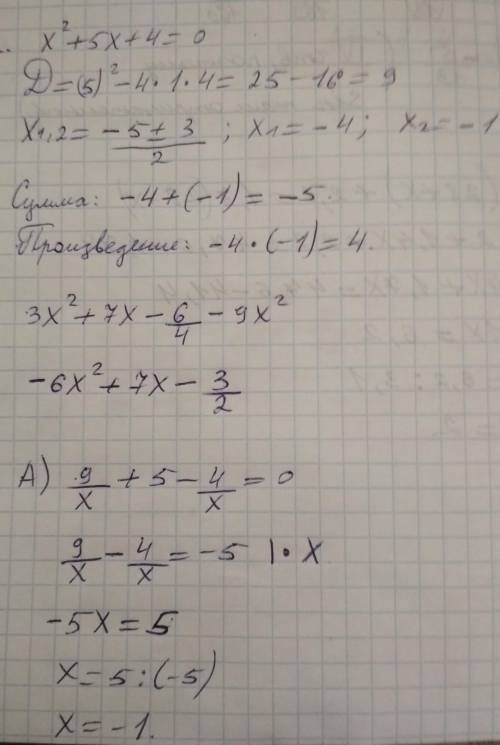 x² + 5x + 4 = 0
D = (5)² - 4 · 1 · 4 = 25 - 16 = 9
x₁,₂ = (-5 ± 3)/2 ; x₁ = -4 ; x₂ = -1
Сумма: -4 + (-1) = -5.
Произведение: -4 · (-1) = 4.
3x² + 7x - 6/4 - 9x²
-6x² + 7x - 3/2
А) 9/x + 5 - 4/x = 0
9/x - 4/x = -5 | · x
-5x = 5
x = 5 : (-5)
x = -1.